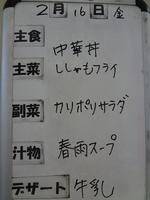 2月16日 金
主食 中華丼
主菜 ししゃもフライ
副菜 カリポリサラダ
汁物 春雨スープ
デザート 牛乳